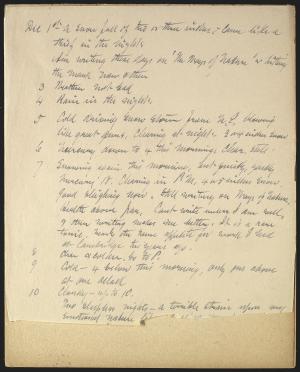 Dec 1st A snow fall of two or three inches; came like a
thief in the night.
Am writing these days on "The Ways of Nature" & hitting
the mark now & then
3 Weather not cold
4 Rain in the night.
5 Cold driving snow storm from N.E.,
like great Clearing at night. 3 or 4 inches snow
6 Mercury down to 4 this morning, clear, still.
7 Snowing again this morning, but gently,
mercury 18. Clearing in P.M. 4 or 5 inches snow
Good sleighing now. Still writing on Ways of Nature,
health above par. Can't write unless I am well,
& then writing makes me better. It is a real
tonic. Have the same appetite for work I had
at Cambridge two years ago.
8 Clear & colder, 6 to 8.
9 Cold - 4 below this morning, only one above
at one oclock
10 Cloudy - up to 10.
Two sleepless nights - a terrible strain upon my
emotional nature